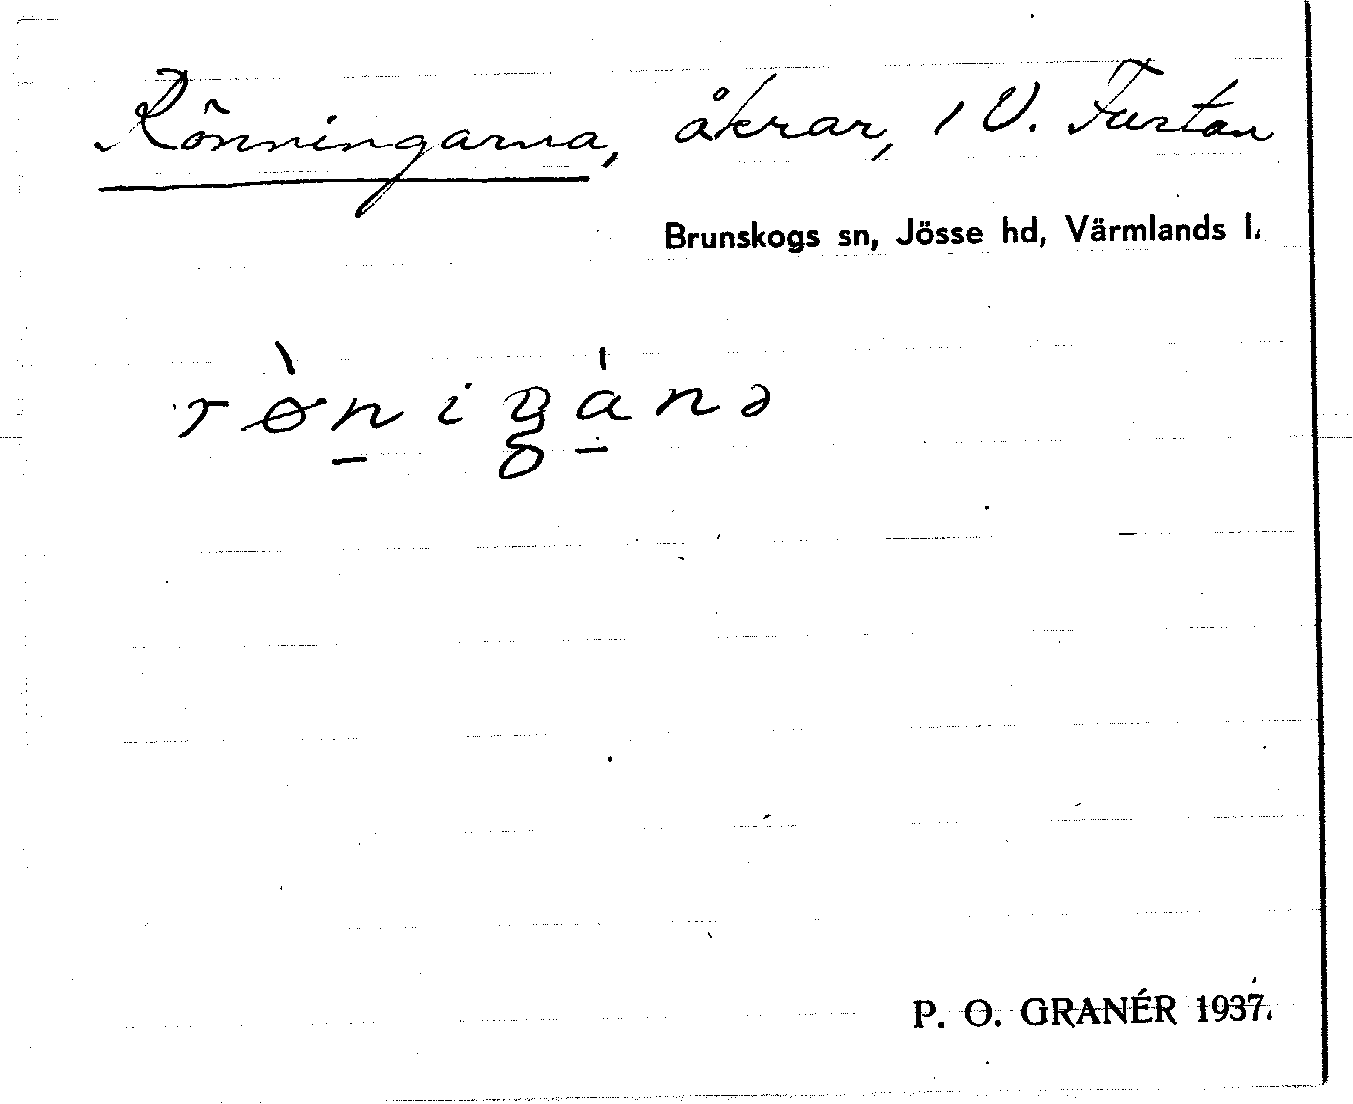 Rönningarna, åkrar, i V. Furtan
Brunskogs sn, Jösse hd, Värmlands l.
P. O. GRANÉR 1937.